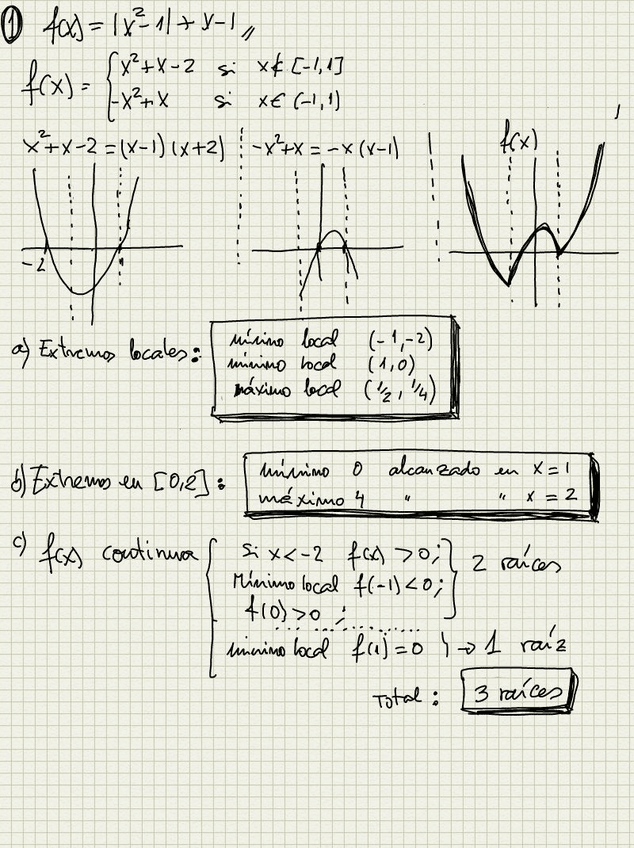 ① f(x) = |x²-1| + x-1 //
f(x) = { x²+x-2 si x∉[-1,1]
-x²+x si x∈(-1,1)
x²+x-2 = (x-1)(x+2) -x²+x = -x(x-1) f(x)
-2
a) Extremos locales:
mínimo local (-1,-2)
mínimo local (1,0)
máximo local (1/2, 1/4)
b) Extremos en [0,2]:
mínimo 0 alcanzado en x=1
máximo 4 " " x=2
c) f(x) continua
si x<-2 f(x)>0;
Mínimo local f(-1)<0;
f(0)>0;
} 2 raíces
mínimo local f(1)=0 } → 1 raíz
Total: 3 raíces